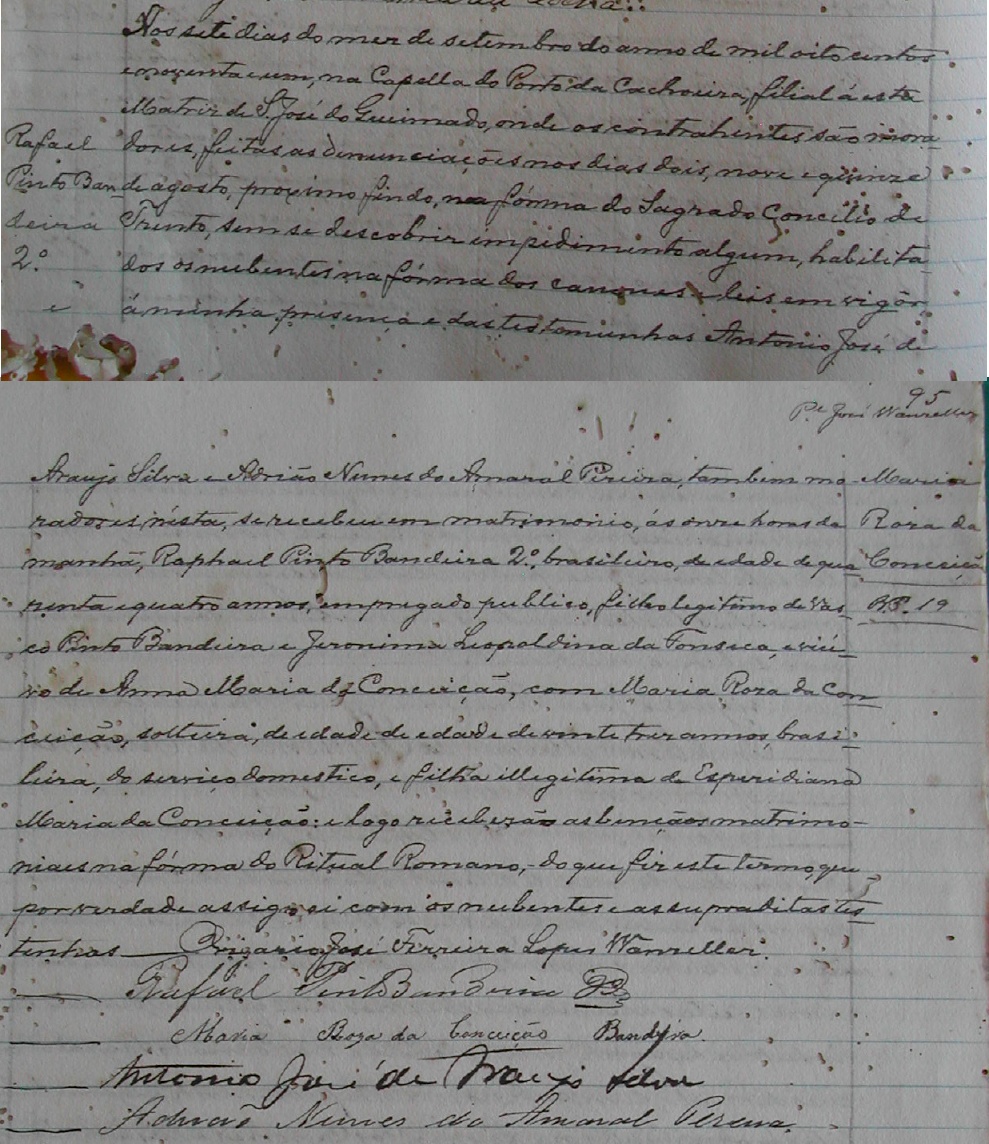 Nos sete dias do mez de setembro do anno de mil oito centos
e noventa e um, na Capella do Porto da Cachoeira, filial á esta
Matriz de S. José do Queimado, onde os contrahentes são mora
dores, feitas as denunciações nos dias dois, nove e quinze
de agosto, proximo findo, na fórma do Sagrado Concilio de
Trento, sem se descobrir impidimento algum, habilita
dos os nubentes na fórma dos canones e leis em vigôr,
á minha presença e das testemunhas Antonio José de
Rafael
Pinto Ban
deira
2.º
e
95
P.e José Wanzeller
Araujo Silva e Adrião Nunes do Amaral Pereira, tambem mo
radores nésta, se recebeu em matrimonio, ás onze horas da
manhã, Raphael Pinto Bandeira 2.º, brasileiro, de edade de qua
renta e quatro annos, empregado publico, filho legitimo de Vas
co Pinto Bandeira e Jeronima Leopoldina da Fonseca, e viu
vo de Anna Maria da Conceição, com Maria Roza da Con
ceição, solteira, de edade de edade de vinte trez annos, brasi
leira, do serviço domestico, e filha illegitima de Esperidiana
Maria da Conceição: e logo receberão as bençãos matrimo-
niaes na fórma do Ritual Romano, do que fiz este termo, que
por verdade assignei com os nubentes e as supraditas tes
tinhas O Vigario José Ferreira Lopes Wanzeller.
Rafael Pinto Bandeira 2º
Maria Roza da Conceição Bandyra.
Antonio José de Araujo Silva
Adrião Nunes do Amaral Pereira.
Maria
Roza da
Conceição
19